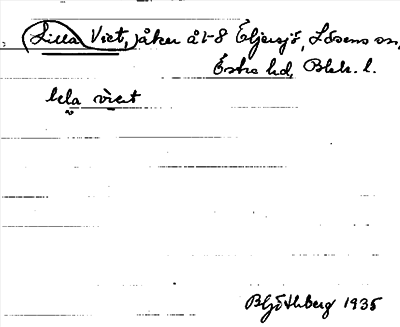 (Lilla Viet,) åker å 1-8 Eljersjö, Lösens sn,
Östra hd, Blek. l.
lela viet
B Göthberg 1935